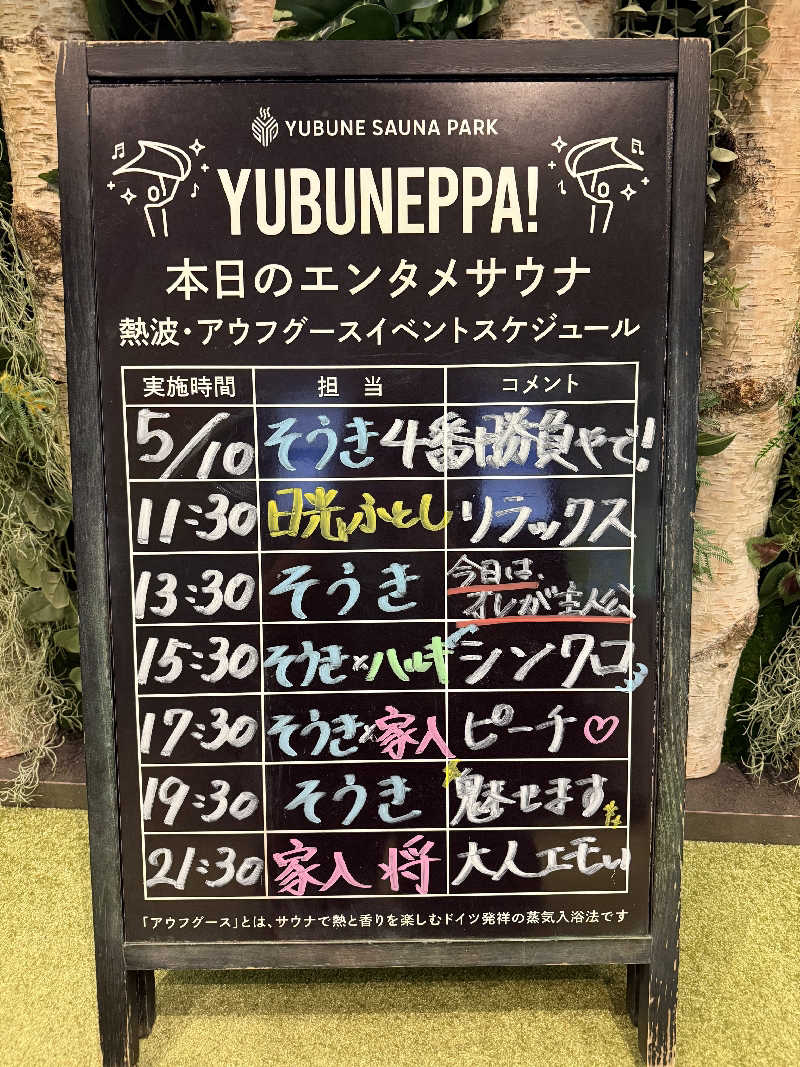 YUBUNE SAUNA PARK
YUBUNEPPA!
本日のエンタメサウナ
熱波・アウフグースイベントスケジュール
実施時間 担当 コメント
5/10 そうき4番勝負やで!
11:30 日光ふとし リラックス
13:30 そうき 今日は、
オレが主人公
15:30 そうき×ハルキ シンクロ
17:30 そうき×家入 ピーチ♡
19:30 そうき 魅せます
21:30 家入 将 大人エモい
「アウフグース」とは、サウナで熱と香りを楽しむドイツ発祥の蒸気入浴法です